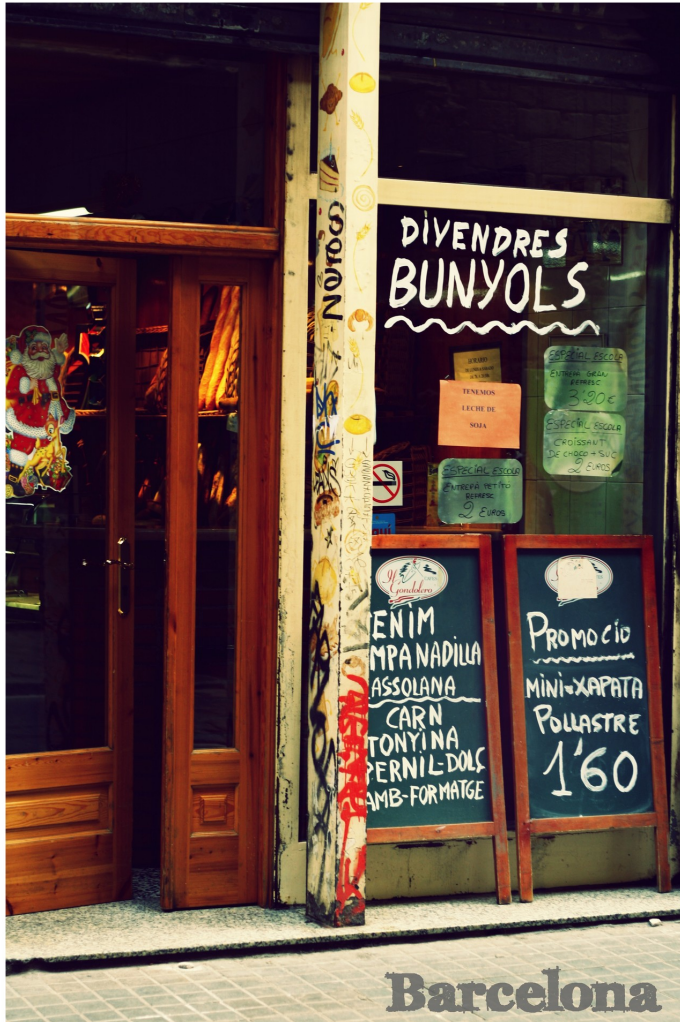 DIVENDRES
BUNYOLS
TENEMOS
LECHE DE
SOJA
ESPECIAL ESCOLA
ENTREPÀ GRAN
REFRESC
3'20€
ESPECIAL ESCOLA
CROISSANT
DE CHOCO + SUC
2 EUROS
ESPECIAL ESCOLA
ENTREPÀ PETITO
REFRESC
2 EUROS
Il
Gondolero
ENIM
MPANADILLA
ASSOLANA
CARN
TONYINA
PERNIL-DOLÇ
AMB-FORMATGE
PROMOCIO
MINI-XAPATA
POLLASTRE
1'60
Barcelona